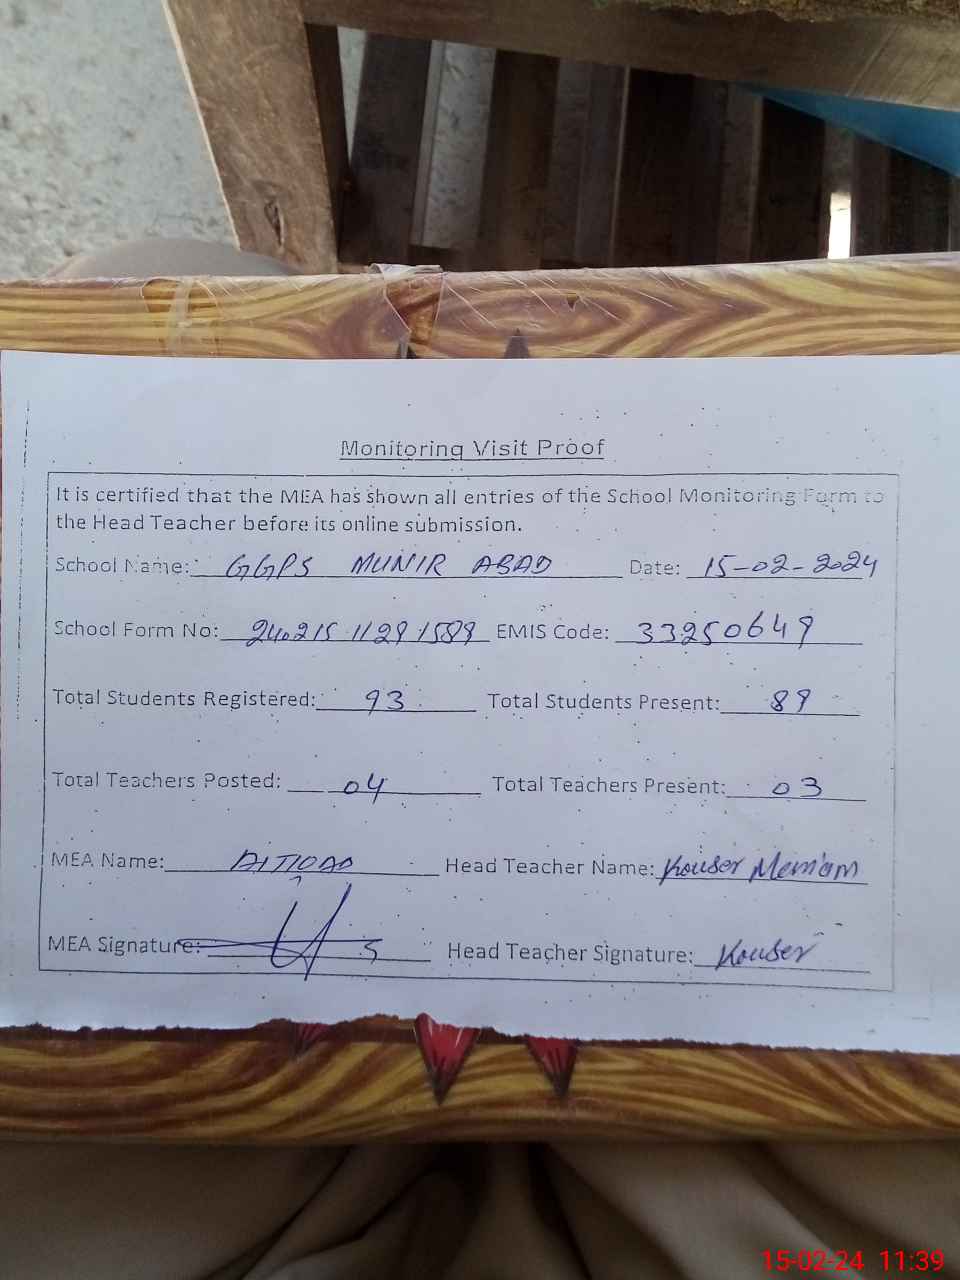 Monitoring Visit Proof
It is certified that the MEA has shown all entries of the School Monitoring Form to
the Head Teacher before its online submission.
School Name: GGPS MUNIR ABAD Date: 15-02-2024
School Form No: 240215 11291589 EMIS Code: 33250649
Total Students Registered: 93 Total Students Present: 89
Total Teachers Posted: 04 Total Teachers Present: 03
MEA Name: Head Teacher Name: Kouser Merriam
MEA Signature: Head Teacher Signature: Kouser
15-02-24 11:39